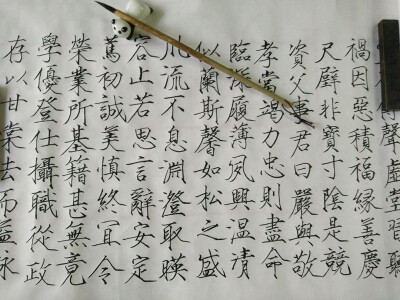 傳聲虛堂習聽
禍因惡積福緣善慶
尺璧非寶寸陰是競
資父事君曰嚴與敬
孝當竭力忠則盡命
臨深履薄夙興温清
似蘭斯馨如松之盛
川流不息淵澄取暎
容止若思言辭安定
篤初誠美慎終宜令
榮業所基籍甚無竟
學優登仕攝職從政
存以甘棠去而益詠